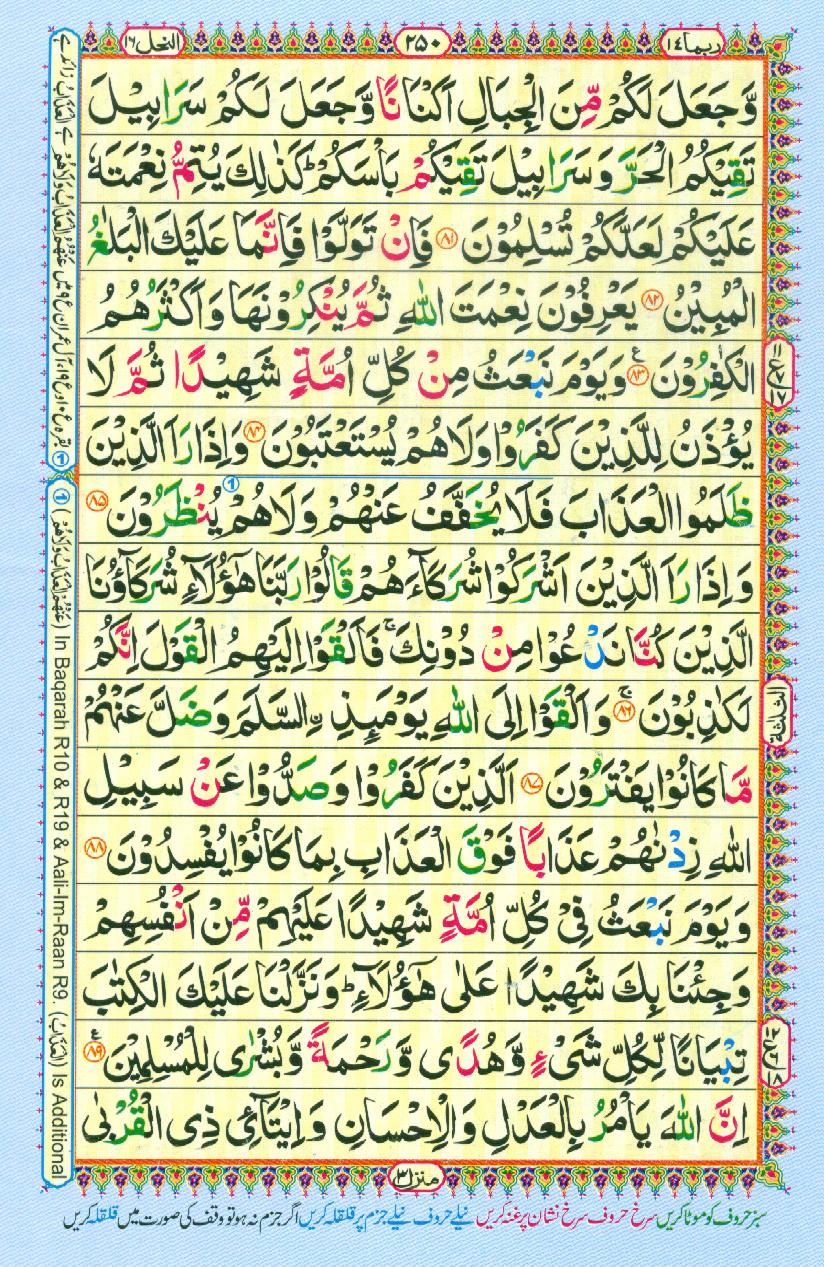 ربما ١٤
٢٥٠
النحل ١٦
وَّجَعَلَ لَكُمْ مِّنَ الْجِبَالِ اَكْنَانًا وَّجَعَلَ لَكُمْ سَرَابِيْلَ
تَقِيْكُمُ الْحَرَّ وَسَرَابِيْلَ تَقِيْكُمْ بَاْسَكُمْ ؕ كَذٰلِكَ يُتِمُّ نِعْمَتَهٗ
عَلَيْكُمْ لَعَلَّكُمْ تُسْلِمُوْنَ ﴿۸۱﴾ فَاِنْ تَوَلَّوْا فَاِنَّمَا عَلَيْكَ الْبَلٰغُ
الْمُبِيْنُ ﴿۸۲﴾ يَعْرِفُوْنَ نِعْمَتَ اللّٰهِ ثُمَّ يُنْكِرُوْنَهَا وَاَكْثَرُهُمُ
الْكٰفِرُوْنَ ﴿۸۳﴾ وَيَوْمَ نَبْعَثُ مِنْ كُلِّ اُمَّةٍ شَهِيْدًا ثُمَّ لَا
يُؤْذَنُ لِلَّذِيْنَ كَفَرُوْا وَلَا هُمْ يُسْتَعْتَبُوْنَ ﴿۸۴﴾ وَاِذَا رَاَ الَّذِيْنَ
ظَلَمُوا الْعَذَابَ فَلَا يُخَفَّفُ عَنْهُمْ وَلَا هُمْ يُنْظَرُوْنَ ﴿۸۵﴾
وَاِذَا رَاَ الَّذِيْنَ اَشْرَكُوْا شُرَكَآءَهُمْ قَالُوْا رَبَّنَا هٰۤؤُلَآءِ شُرَكَآؤُنَا
الَّذِيْنَ كُنَّا نَدْعُوْا مِنْ دُوْنِكَ ۚ فَاَلْقَوْا اِلَيْهِمُ الْقَوْلَ اِنَّكُمْ
لَكٰذِبُوْنَ ﴿۸۶﴾ وَاَلْقَوْا اِلَى اللّٰهِ يَوْمَئِذِ ۨالسَّلَمَ وَضَلَّ عَنْهُمْ
مَّا كَانُوْا يَفْتَرُوْنَ ﴿۸۷﴾ اَلَّذِيْنَ كَفَرُوْا وَصَدُّوْا عَنْ سَبِيْلِ
اللّٰهِ زِدْنٰهُمْ عَذَابًا فَوْقَ الْعَذَابِ بِمَا كَانُوْا يُفْسِدُوْنَ ﴿۸۸﴾
وَيَوْمَ نَبْعَثُ فِيْ كُلِّ اُمَّةٍ شَهِيْدًا عَلَيْهِمْ مِّنْ اَنْفُسِهِمْ
وَجِئْنَا بِكَ شَهِيْدًا عَلٰى هٰۤؤُلَآءِ ؕ وَنَزَّلْنَا عَلَيْكَ الْكِتٰبَ
تِبْيَانًا لِّكُلِّ شَيْءٍ وَّهُدًى وَّرَحْمَةً وَّبُشْرٰى لِلْمُسْلِمِيْنَ ﴿۸۹﴾
اِنَّ اللّٰهَ يَاْمُرُ بِالْعَدْلِ وَالْاِحْسَانِ وَاِيْتَآئِ ذِي الْقُرْبٰى
الثلثة
منزل ٣
(عَنْهُمُ الْعَذَابُ وَلَا هُمْ) In Baqarah R10 & R19 & Aali-Im-Raan R9. (الْعَذَابُ) Is Additional
سبز حروف کو موٹا کریں سرخ حروف سرخ نشان پر غنہ کریں نیلے حروف نیلے جزم پر قلقلہ کریں اگر جزم نہ ہو تو وقف کی صورت میں قلقلہ کریں